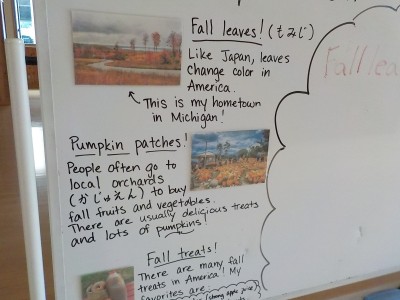 Fall leaves! (もみじ)
Like Japan, leaves
change color in
America.
This is my hometown
in Michigan!
Pumpkin patches!
People often go to
local orchards
(かじゅえん) to buy
fall fruits and vegetables.
There are usually delicious treats
and lots of pumpkins!
Fall treats!
There are many fall
treats in America! My
favorites are
(strong apple juice)
Fall lea